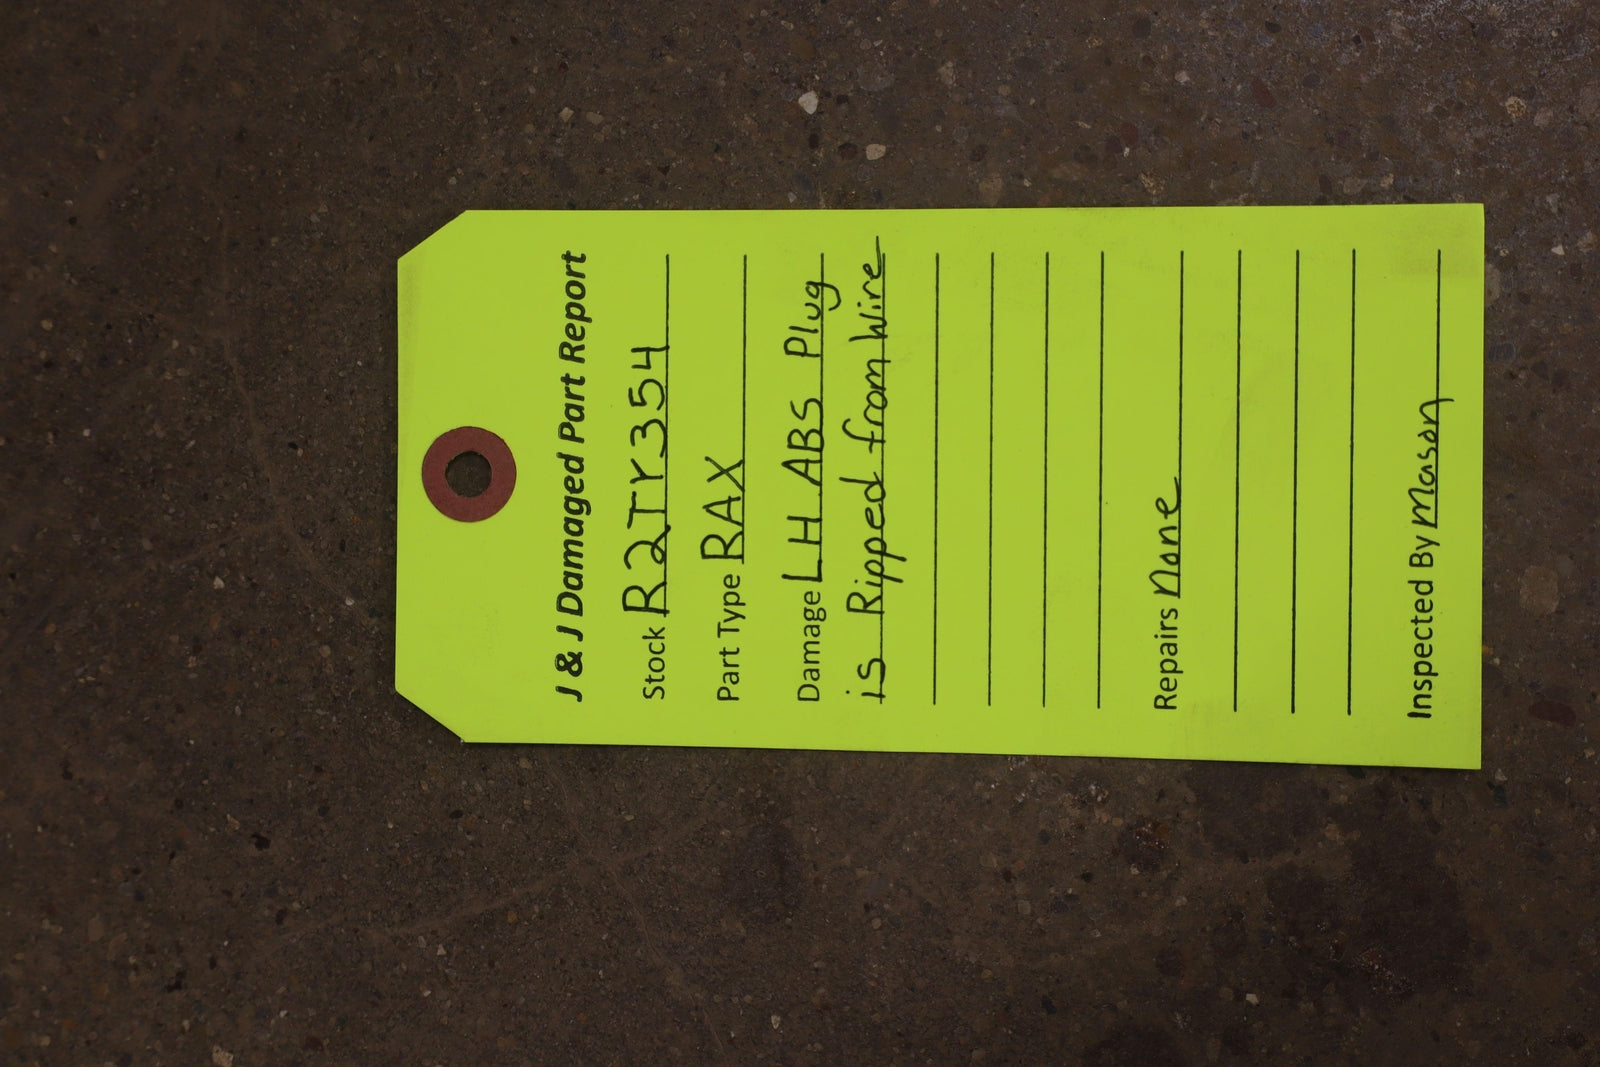 J & J Damaged Part Report
Stock R2TY354
Part Type RAX
Damage LH ABS Plug
is Ripped from Wire
Repairs None
Inspected By Mason